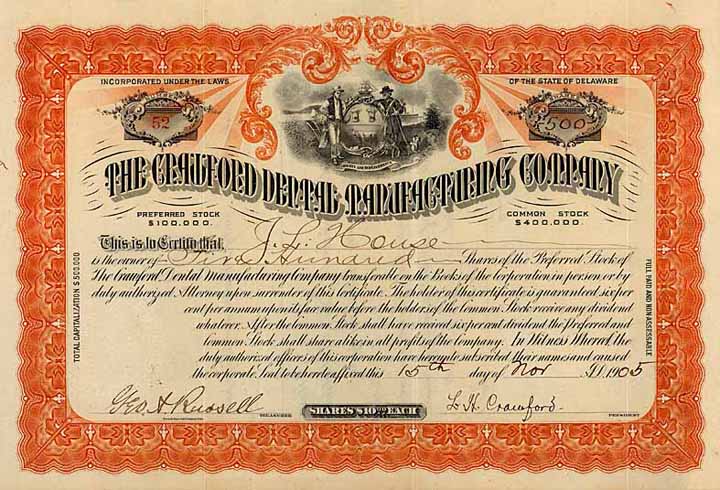 INCORPORATED UNDER THE LAWS
OF THE STATE OF DELAWARE
NUMBER
52
SHARES
500
THE CRAWFORD DENTAL MANUFACTURING COMPANY
PREFERRED STOCK
$100,000.
COMMON STOCK
$400,000.
This is to Certify that J. L. House
is the owner of Five Hundred Shares of the Preferred Stock of
The Crawford Dental Manufacturing Company transferable on the Books of the Corporation in person or by
duly authorized Attorney upon surrender of this Certificate. The holder of this certificate is guaranteed six per
cent per annum upon it face value before the holders of the Common Stock receive any dividend
whatever. After the Common Stock shall have received six per cent dividend the Preferred and
Common Stock shall share alike in all profits of the Company. In Witness Whereof, the
duly authorized officers of this corporation have hereunto subscribed their names and caused
the corporate Seal to be hereto affixed this 15th day of Nov A.D. 1905
Geo A Russell
TREASURER
SHARES $10.00 EACH
L. H. Crawford.
PRESIDENT
TOTAL CAPITALIZATION $500,000
FULL PAID AND NON ASSESSABLE